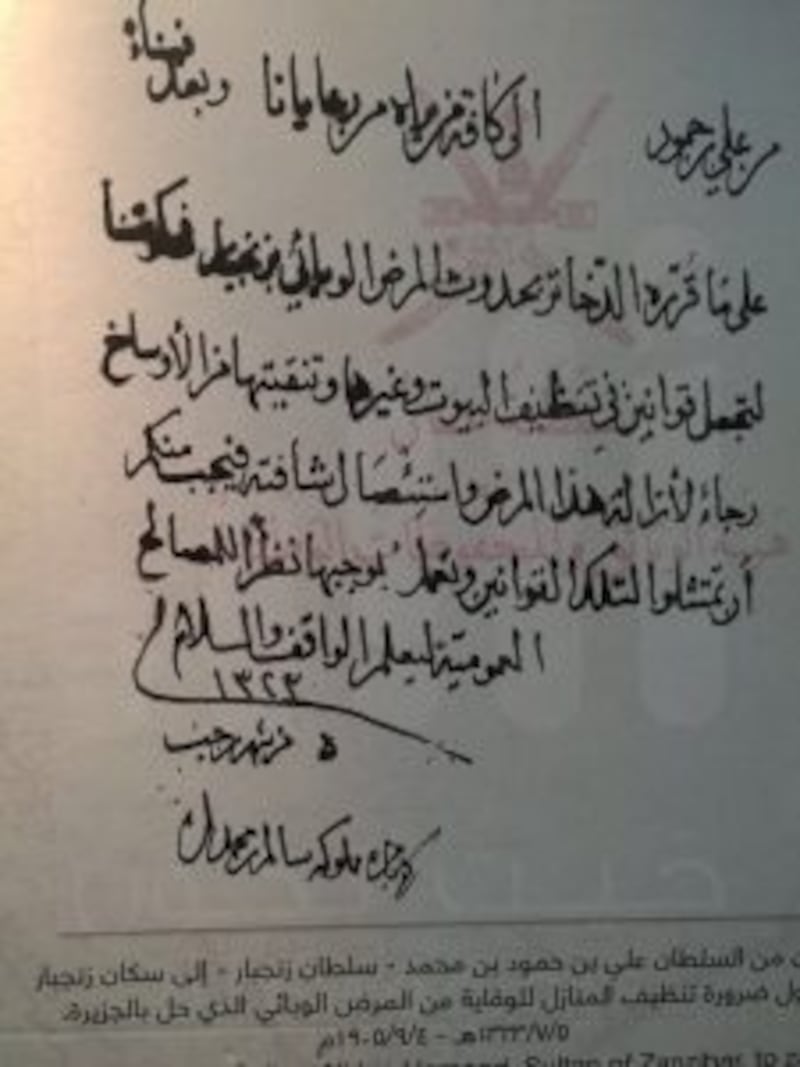 من علي بن حمود الى كافة من يراه من رعايانا وبعد فبناء
على ما قرره الدخاتر بحدوث المرض الوبائي في زنجبار فكرنا
لنجعل قوانين في تنظيف البيوت وغيرها وتنقيتها من الأوساخ
رجاء لأزالة هذا المرض واستئصال شافته فيجب منكم
أن تمتثلوا لتلك القوانين وتعملوا بوجبها نظرا للمصالح
العمومية ليعلم الواقف والسلام
١٣٢٣
٥ من شهر رجب
مملوكه سالم بن محمد
من السلطان علي بن حمود بن محمد - سلطان زنجبار - إلى سكان زنجبار
ضرورة تنظيف المنازل للوقاية من المرض الوبائي الذي حل بالجزيرة.
١٣٢٣/٧/٥هـ - ١٩٠٥/٩/٤م
Hamood, Sultan of Zanzibar, to